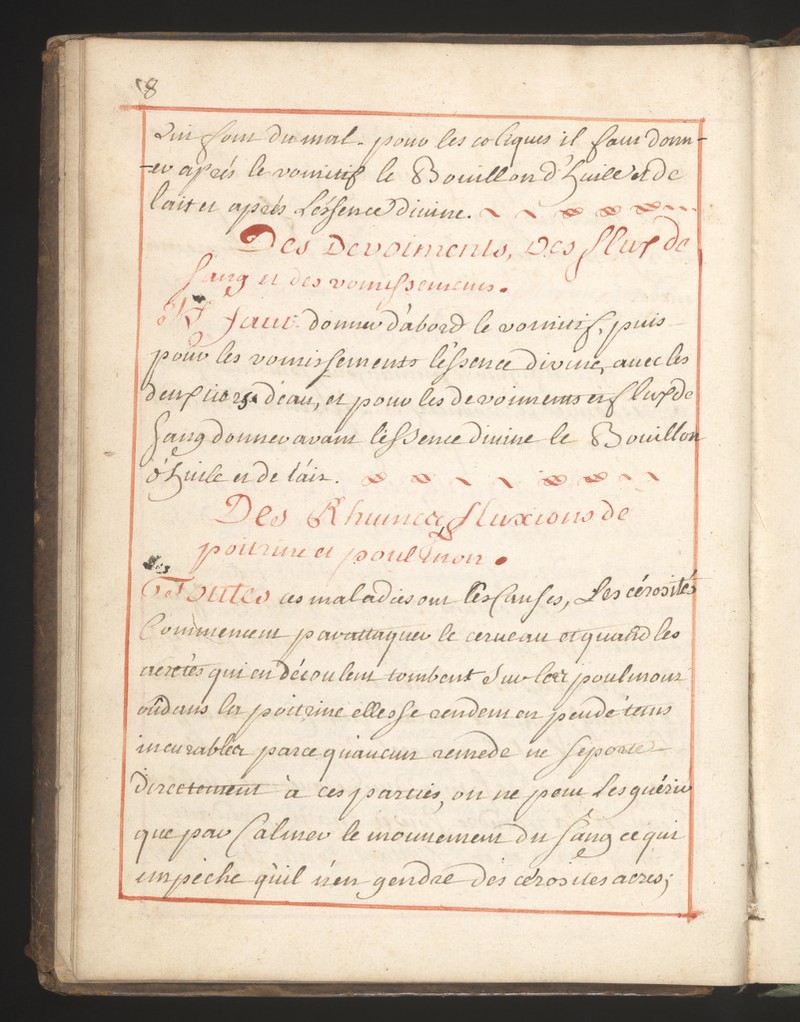 8
Qui font du mal. pour les coliques il faut donn-
-er aprés le vomitif le Bouillon d'huile et de
lait et aprés L'éssence divine.
Des Devoiments, Des flux de
sang et des vomissements.
Il faut donner d'abord le vomitif, puis
pour les vomissements l'éssence divine, avec les
deux tiers d'eau, et pour les devoiments et flux de
sang donner avant l'éssence divine le Bouillon
d'huile et de lait.
Des Rhumes, fluxions de
poitrine et poulmon.
Toutes ces maladies ont les causes, Les cérosités
Commencent par attaquer le cerveau et quand les
acretés qui en découlent tombent sur les poulmons
oû dans la poitrine elles se rendent en peu de tems
incurables parce qu'aucun remede ne se porte
directement à ces parties, on ne peut Les guérir
que par Calmer le mouvement du sang ce qui
empêche qu'il n'engendre des cérosites acres;